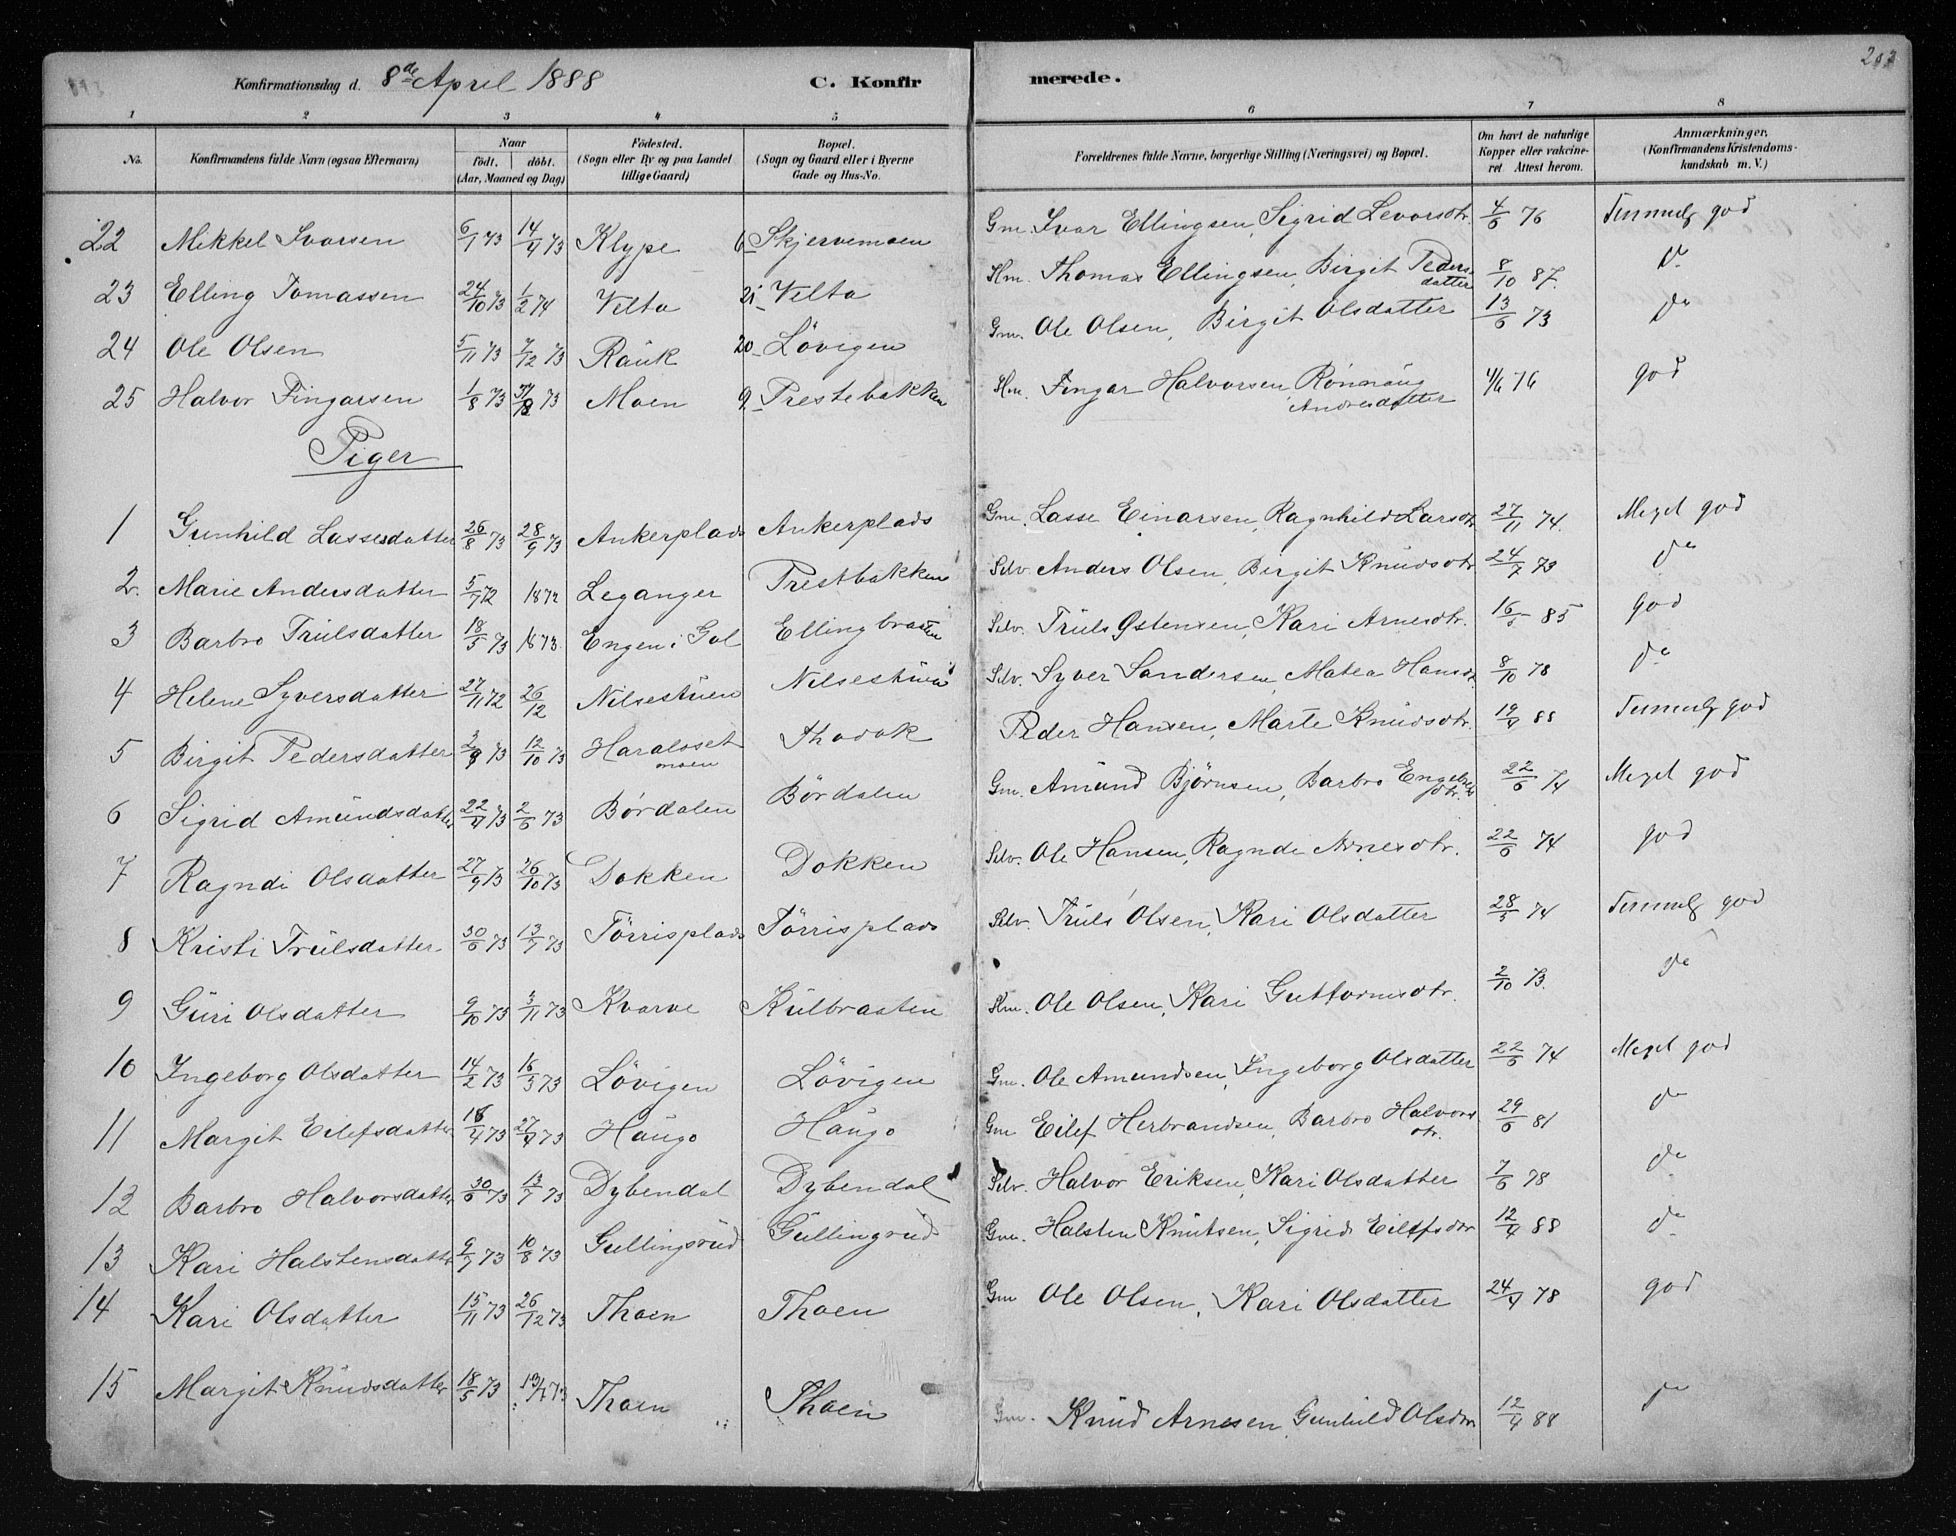 Konfirmationsdag d. 8de April 1888 C. Konfirmerede. 203
1 2 3 4 5 6 7 8
No. Konfirmandens fulde Navn (ogsaa Efternavn) Naar født. døbt. (Aar, Maaned og Dag) Födested. (Sogn eller By og paa Landet tillige Gaard) Bopæl. (Sogn og Gaard eller i Byerne Gade og Hus-No. Forældrenes fulde Navne, borgerlige Stilling (Næringsvei) og Bopæl. Om havt de naturlige Kopper eller vakcineret Attest herom. Anmærkninger, (Konfirmandens Kristendomskundskab m. V.)
22 Mikkel Ivarsen 6/1 73 14/4 73 Klype 6 Skjervemoen Gm. Ivar Ellingsen, Sigrid Levorsdtr. 4/6 76 Temmelg god
23 Elling Tomassen 24/10 73 1/2 74 Velta 21 Velta Hm. Thomas Ellingsen, Birgit Pedersdatter 8/10 87. do
24 Ole Olsen 5/11 73 7/12 73 Rauk 20 Lövigen Gm. Ole Olsen, Birgit Olsdatter 13/6 73 do
25 Halvor Fingarsen 1/8 73 31/8 73 Moen 9 Prestebakken Hm. Fingar Halvorsen Rönnaug Andresdatter 4/6 76 god
Piger
1 Gunhild Lassesdatter 26/8 73 28/9 73 Ankerplads Ankerplads Gm. Lasse Einarsen, Ragnhild Larsdtr 27/11 74. Meget god
2. Marie Andersdatter 5/7 72 1872 Leganger Prestbakken Selv. Anders Olsen, Birgit Knudsdtr 24/7 73 do
3 Barbro Trulsdatter 18/5 73 1873. Engen i Gol Ellingbraaten Selv. Truls Østensen, Kari Arnesdtr. 16/5 85 god
4 Helene Syversdatter 27/11 72 26/12 Nilsestuen Nilsestuen Selv. Syver Sandersen, Matea Hansdt. 8/10 78 do
5 Birgit Pedersdatter 2/9 73 12/10 73 Haraldset moen Thodok Peder Hansen, Marte Knudsdtr. 19/4 88 Temmelg god
6 Sigrid Amundsdatter 22/4 73 2/6 73 Bördalen Bördalen Gm. Amund Björnsen, Barbro Engebretsdtr. 22/6 74 Meget god
7 Ragndi Olsdatter 27/9 73 26/10 73 Dokken Dokken Selv. Ole Hansen, Ragndi Arnesdtr. 22/6 74 god
8 Kristi Trulsdatter 30/6 73 13/7 73 Törrisplads Törrisplads Selv. Truls Olsen, Kari Olsdatter 28/5 74 Temmelg god
9 Guri Olsdatter 9/10 73 3/11 73 Kvarve Kulbraaten Hm. Ole Olsen, Kari Guttormsdtr. 2/10 73. do
10 Ingeborg Olsdatter 14/2 73 16/3 73 Lövigen Lövigen Gm. Ole Amundsen, Ingeborg Olsdatter 22/6 74 Meget god
11 Margit Eilefsdatter 16/4 73 27/4 73 Haugo Haugo Gm Eilef Herbrandsen, Barbro Halvorsdtr. 29/6 81 do
12 Barbro Halvorsdatter 30/6 73 13/7 73 Dybendal Dybendal Selv. Halvor Eriksen, Kari Olsdatter 7/6 78 do
13 Kari Halstensdatter 9/7 73 10/8 73 Gullingsrud Gullingrud Gm. Halsten Knutsen, Sigrid Eilefsdtr 12/4 88 do
14 Kari Olsdatter 15/11 73 26/12 73 Thoen Thoen Gm Ole Olsen, Kari Olsdatter 24/4 78 god
15 Margit Knudsdatter 18/5 73 13/7 73 Thoen Thoen Gm. Knud Arnesen, Gunhild Olsdtr 12/4 88 do